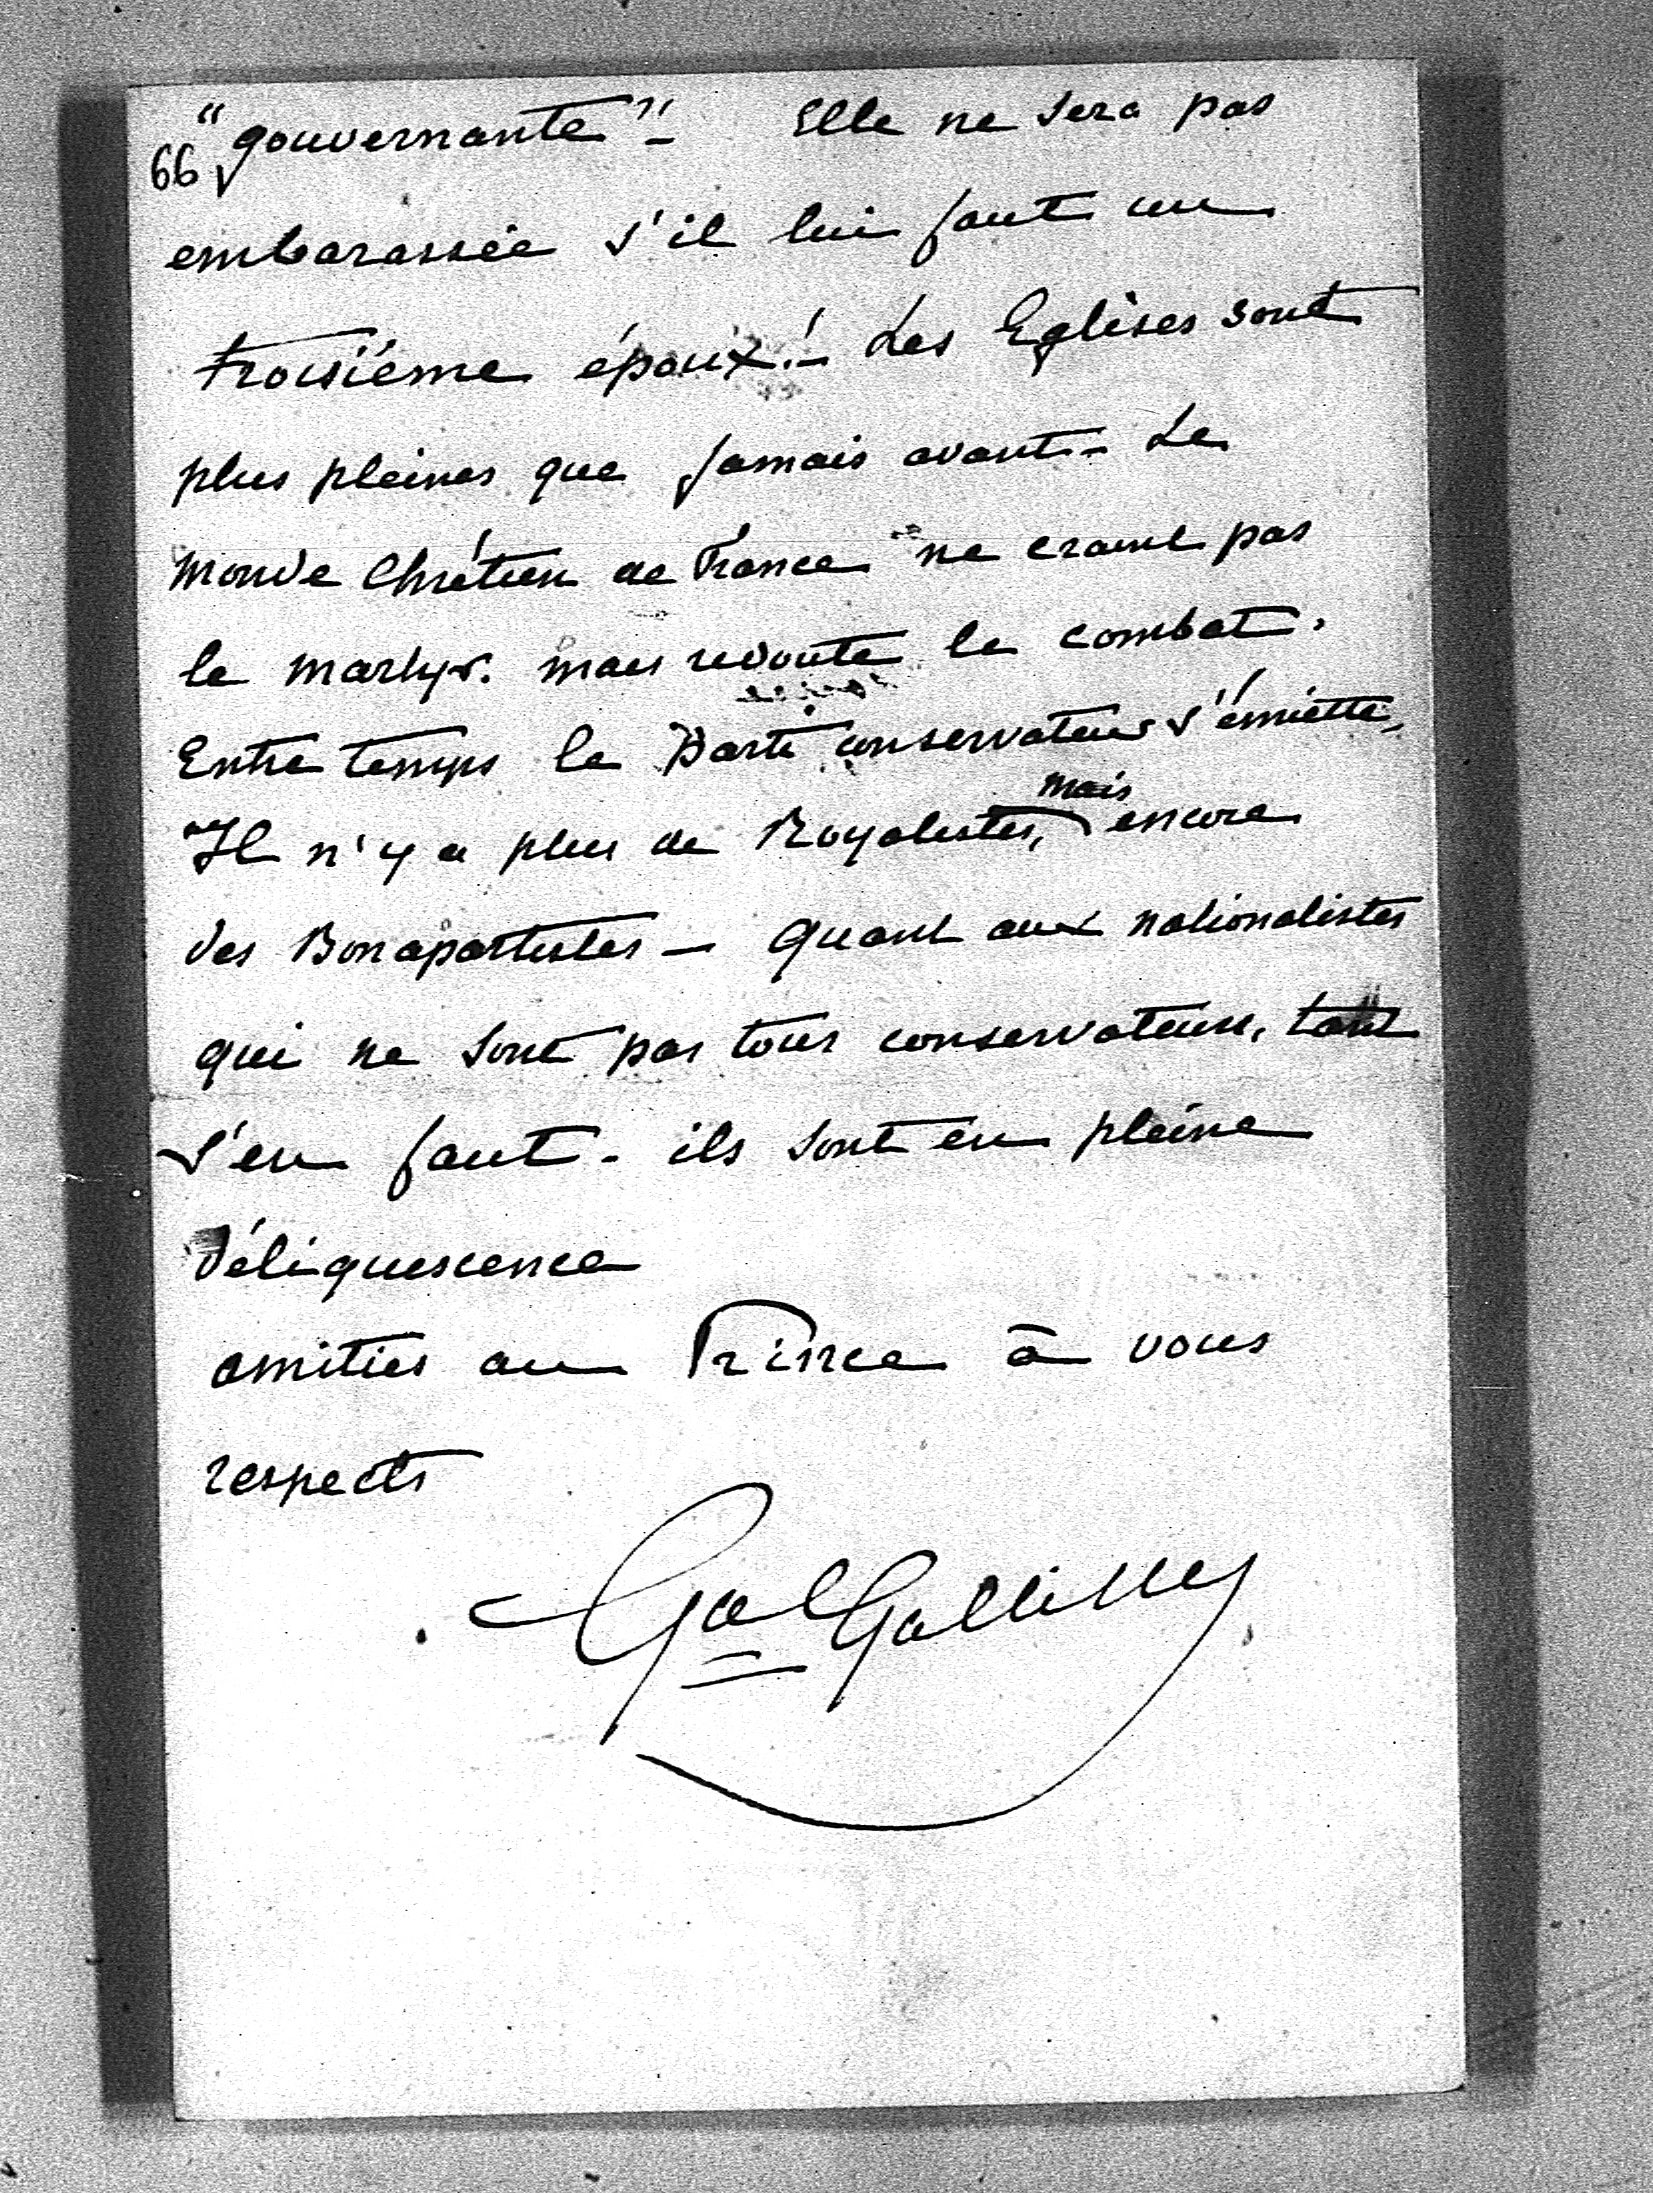 66 "gouvernante" – Elle ne sera pas
embarassée s'il lui faut un
troisième époux! – Les Eglises sont
plus pleines que jamais avant – Le
monde Chrétien de France ne craint pas
le martyr. mais redoute le combat.
Entre temps le Parti conservateur s'émiette,
Il n'y a plus de Royalistes, mais encore
des Bonapartistes – quant aux nationalistes
qui ne sont pas tous conservateurs, tant
s'en faut – ils sont en pleine
déliquescence
amitiés au Prince à vous
respects
Gal Galliffet